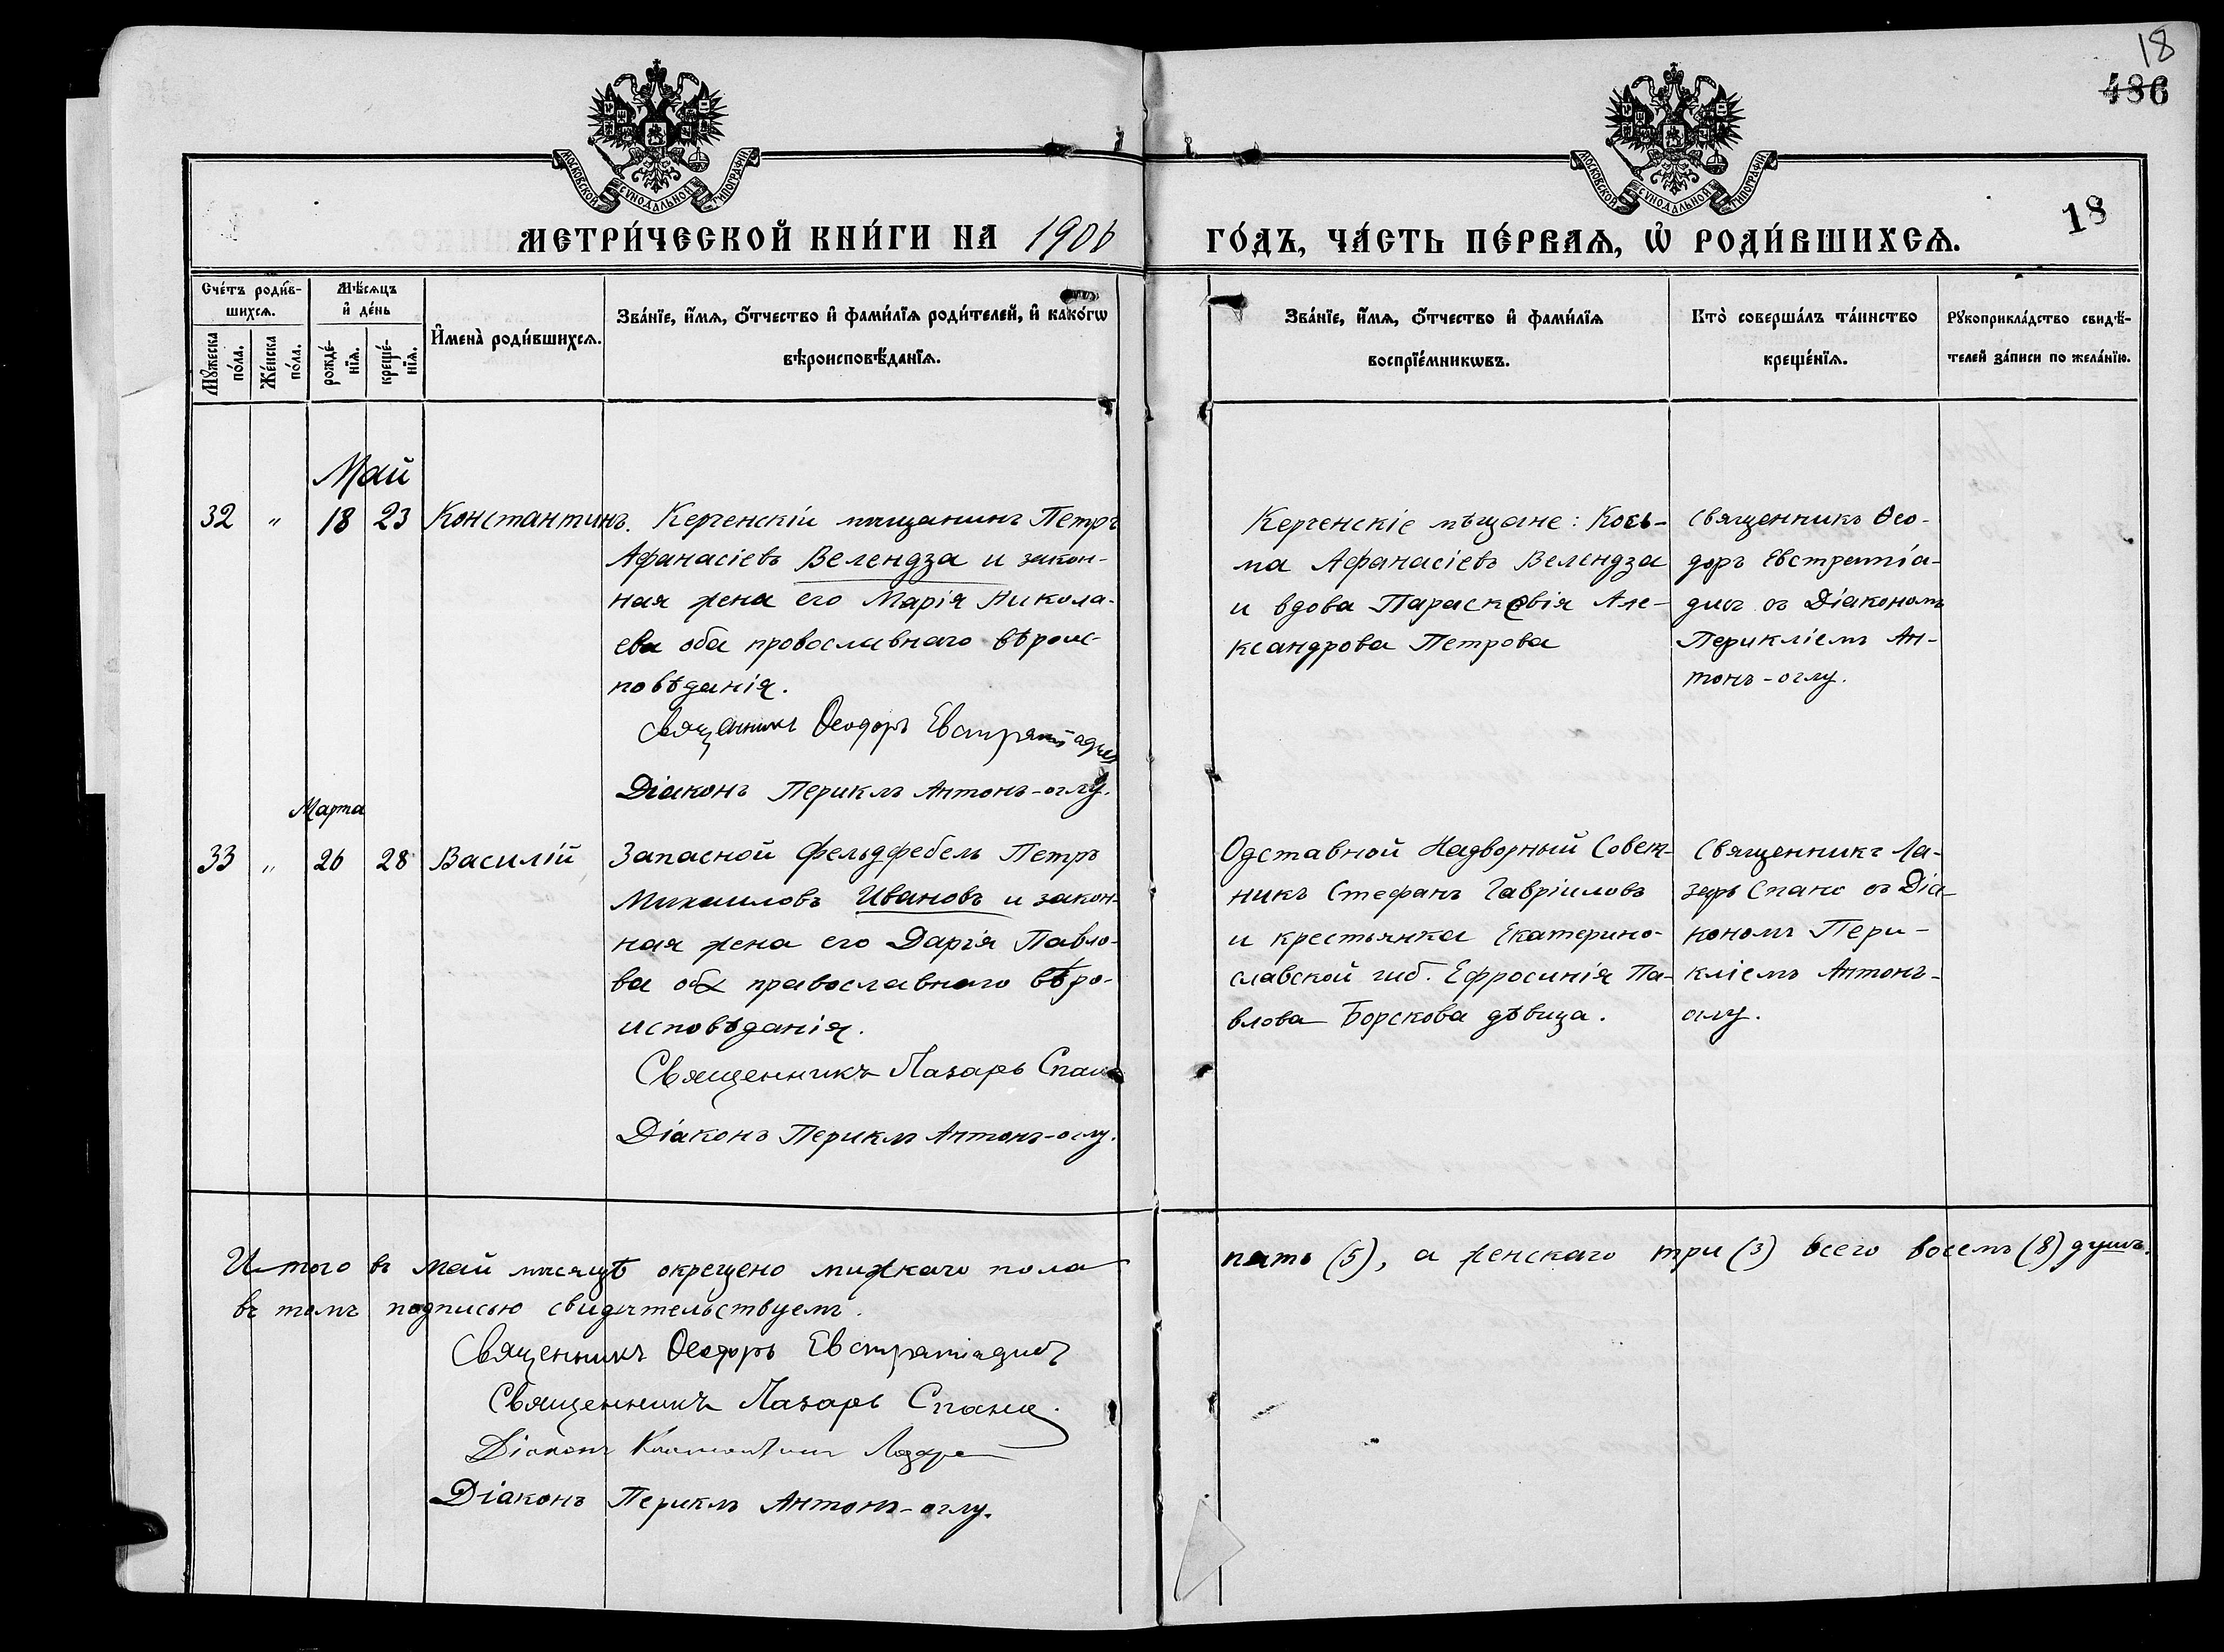 18
486
МОСКОВСКОЙ СУНОДАЛЬНОЙ ТИПОГРАФІИ
МОСКОВСКОЙ СУНОДАЛЬНОЙ ТИПОГРАФІИ
18
МЕТРИ́ЧЕСКОЙ КНИ́ГИ НА 1906 ГО́ДЪ, ЧА́СТЬ ПЕ́РВАѦ, Ѡ҆ РОДИ́ВШИХСѦ.
Сче́тъ роди́в-
шихсѧ.
Мꙋжеска по́ла.
Же́нска по́ла.
Мѣ́сѧцъ
и҆ де́нь
рожде́-
нїѧ.
креще́-
нїѧ.
И҆мена̀ роди́вшихсѧ.
Зва́нїе, и҆́мѧ, ѻ҆́тчество и҆ фами́лїѧ роди́телей, и҆ како́гѡ
вѣроисповѣ́данїѧ.
Зва́нїе, и҆́мѧ, ѻ҆́тчество и҆ фами́лїѧ
воспрїе́мникѡвъ.
Кто̀ соверша́лъ та́инство
креще́нїѧ.
Рꙋкоприкла́дство свидѣ́-
телей за́писи по жела́нїю.
Май
32 " 18 23 Константинъ. Керченскій мѣщанинъ Петръ
Афанасіевъ Велендза и закон-
ная жена его Марія Никола-
ева оба провославнаго вѣроис-
повѣданія.
Священникъ Ѳеодоръ Евстратіадисъ
Діаконъ Периклъ Антонъ-оглу.
Керченскіе мѣщане: Кось-
ма Афанасіевъ Велендза
и вдова Парасковія Але-
ксандрова Петрова
Священникъ Ѳео-
доръ Евстратіа-
дисъ съ Діакономъ
Перикліемъ Ан-
тонъ-оглу.
Марта
33 " 26 28 Василій Запасной Фельдфебель Петръ
Михаиловъ Ивановъ и закон-
ная жена его Дарія Павло-
ва оба православнаго вѣро-
исповѣданія.
Священникъ Лазарь Спано
Діаконъ Периклъ Антонъ-оглу.
Одставной Надворный Совет-
никъ Стефанъ Гавріиловъ
и крестьянка Екатерино-
славской губ. Ефросинія Па-
влова Борскова дѣвица.
Священникъ Ла-
зарь Спано съ Діа-
кономъ Пери-
кліемъ Антонъ-
оглу.
Итого въ Май мѣсяцѣ окрещено мужкаго пола пять (5), а женскаго три (3) всего восемъ (8) душъ.
въ томъ подписью свидѣтельствуемъ.
Священникъ Ѳеодоръ Евстратіадисъ
Священникъ Лазарь Спано.
Діаконъ Константинъ
Діаконъ Периклъ Антонъ-оглу.